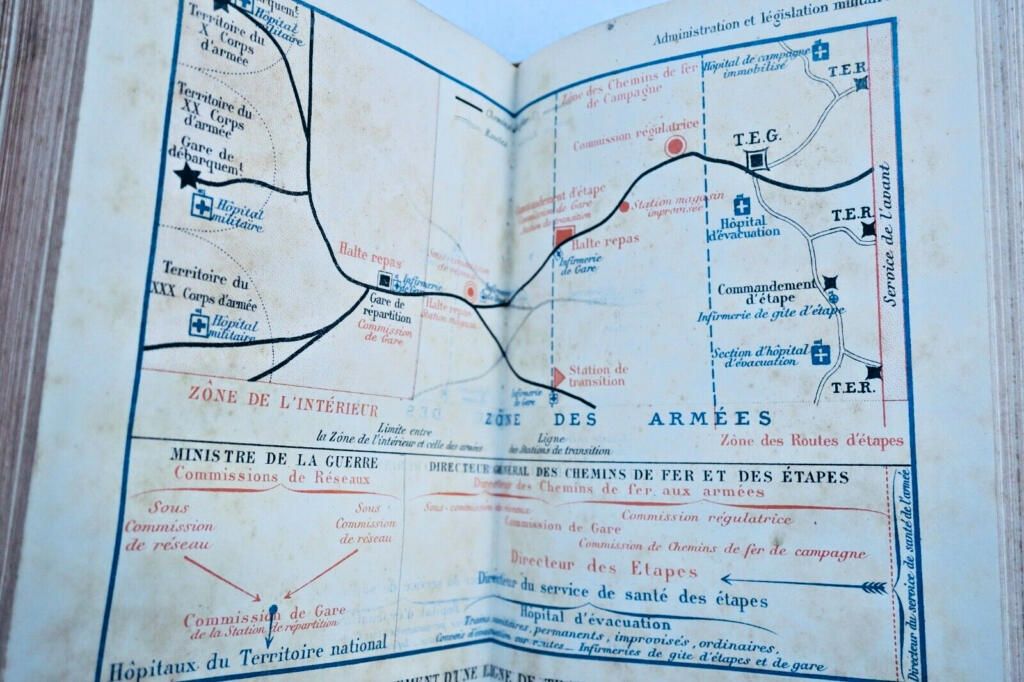 Administration et législation militaire
Hôpital
militaire
Territoire du
X Corps
d'armée
Territoire du
XX Corps
d'armée
Gare de
débarquemt
Hôpital
militaire
Territoire du
XXX Corps d'armée
Hôpital
militaire
Halte repas
Infirmerie
de Gare
Gare de
répartition
Commission
de Gare
Halte repas
Station magasin
Zône des Chemins de fer
de Campagne
Commission régulatrice
Commandement d'étape
Commission de Gare
Station de transition
Station magasin
improvisée
Halte repas
Infirmerie
de Gare
Station de
transition
Infirmerie
de Gare
Hôpital de campagne
immobilisé
T.E.R.
T.E.G.
Hôpital
d'évacuation
T.E.R.
Commandement
d'étape
Infirmerie de gite d'étape
Section d'hôpital
d'évacuation
T.E.R.
Service de l'avant
ZÔNE DE L'INTÉRIEUR
ZÔNE DES ARMÉES
Limite entre
la Zône de l'intérieur et celle des armées
Ligne
des Stations de transition
Zône des Routes d'étapes
MINISTRE DE LA GUERRE
Commissions de Réseaux
Sous
Commission
de réseau
Sous
Commission
de réseau
Commission de Gare
de la Station de répartition
Hôpitaux du Territoire national
DIRECTEUR GÉNÉRAL DES CHEMINS DE FER ET DES ÉTAPES
Directeur des Chemins de fer aux armées
Commission régulatrice
Commission de Gare
Commission de Chemins de fer de campagne
Directeur des Etapes
Directeur du service de santé des étapes
Hôpital d'évacuation
Trains sanitaires, permanents, improvisés, ordinaires,
Convois d'évacuation sur routes _ Infirmeries de gite d'étapes et de gare
Directeur du service de santé de l'armée